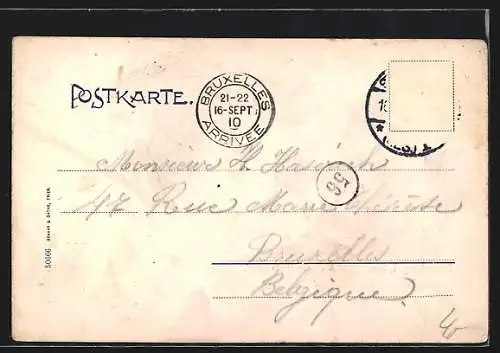 POSTKARTE.
BRUXELLES
21-22
16-SEPT
10
ARRIVÉE
56
Monsieur H.
47 Rue Marie Thérèse
Bruxelles
Belgique
50166